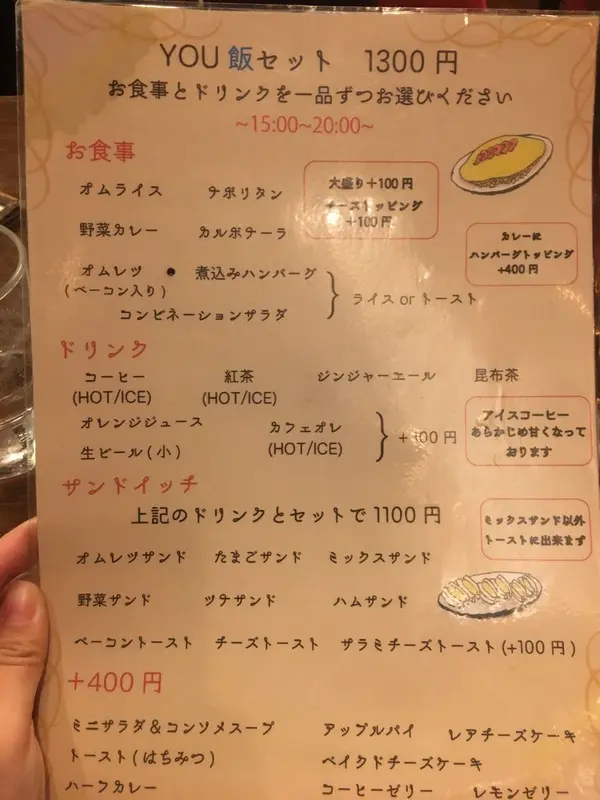 YOU 飯セット 1300 円
お食事とドリンクを一品ずつお選びください
~15:00~20:00~
お食事
オムライス ナポリタン
大盛り+100 円
チーズトッピング
+100 円
野菜カレー カルボナーラ
カレーに
ハンバーグトッピング
+400 円
オムレツ ● 煮込みハンバーグ
(ベーコン入り)
コンビネーションサラダ
ライス or トースト
ドリンク
コーヒー 紅茶 ジンジャーエール 昆布茶
(HOT/ICE) (HOT/ICE)
オレンジジュース カフェオレ
生ビール(小) (HOT/ICE)
+100 円
アイスコーヒー
あらかじめ甘くなって
おります
サンドイッチ
上記のドリンクとセットで 1100 円
ミックスサンド以外
トーストに出来ます
オムレツサンド たまごサンド ミックスサンド
野菜サンド ツナサンド ハムサンド
ベーコントースト チーズトースト サラミチーズトースト(+100 円)
+400 円
ミニサラダ&コンソメスープ アップルパイ レアチーズケーキ
トースト(はちみつ) ベイクドチーズケーキ
ハーフカレー コーヒーゼリー レモンゼリー